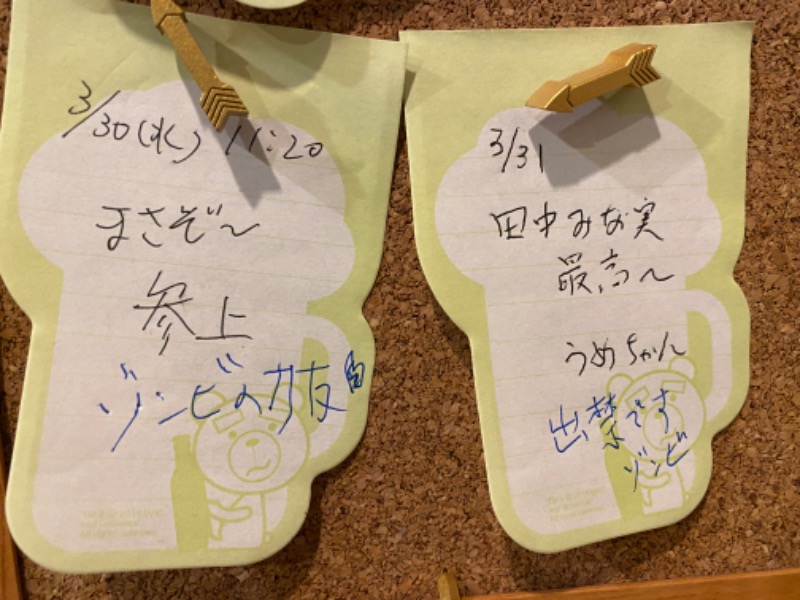 3/30(水) 11:20
まさぞ〜
参上
ゾンビの
3/31
田中みな実
最高〜
うめちゃん
出禁です
ゾンビ